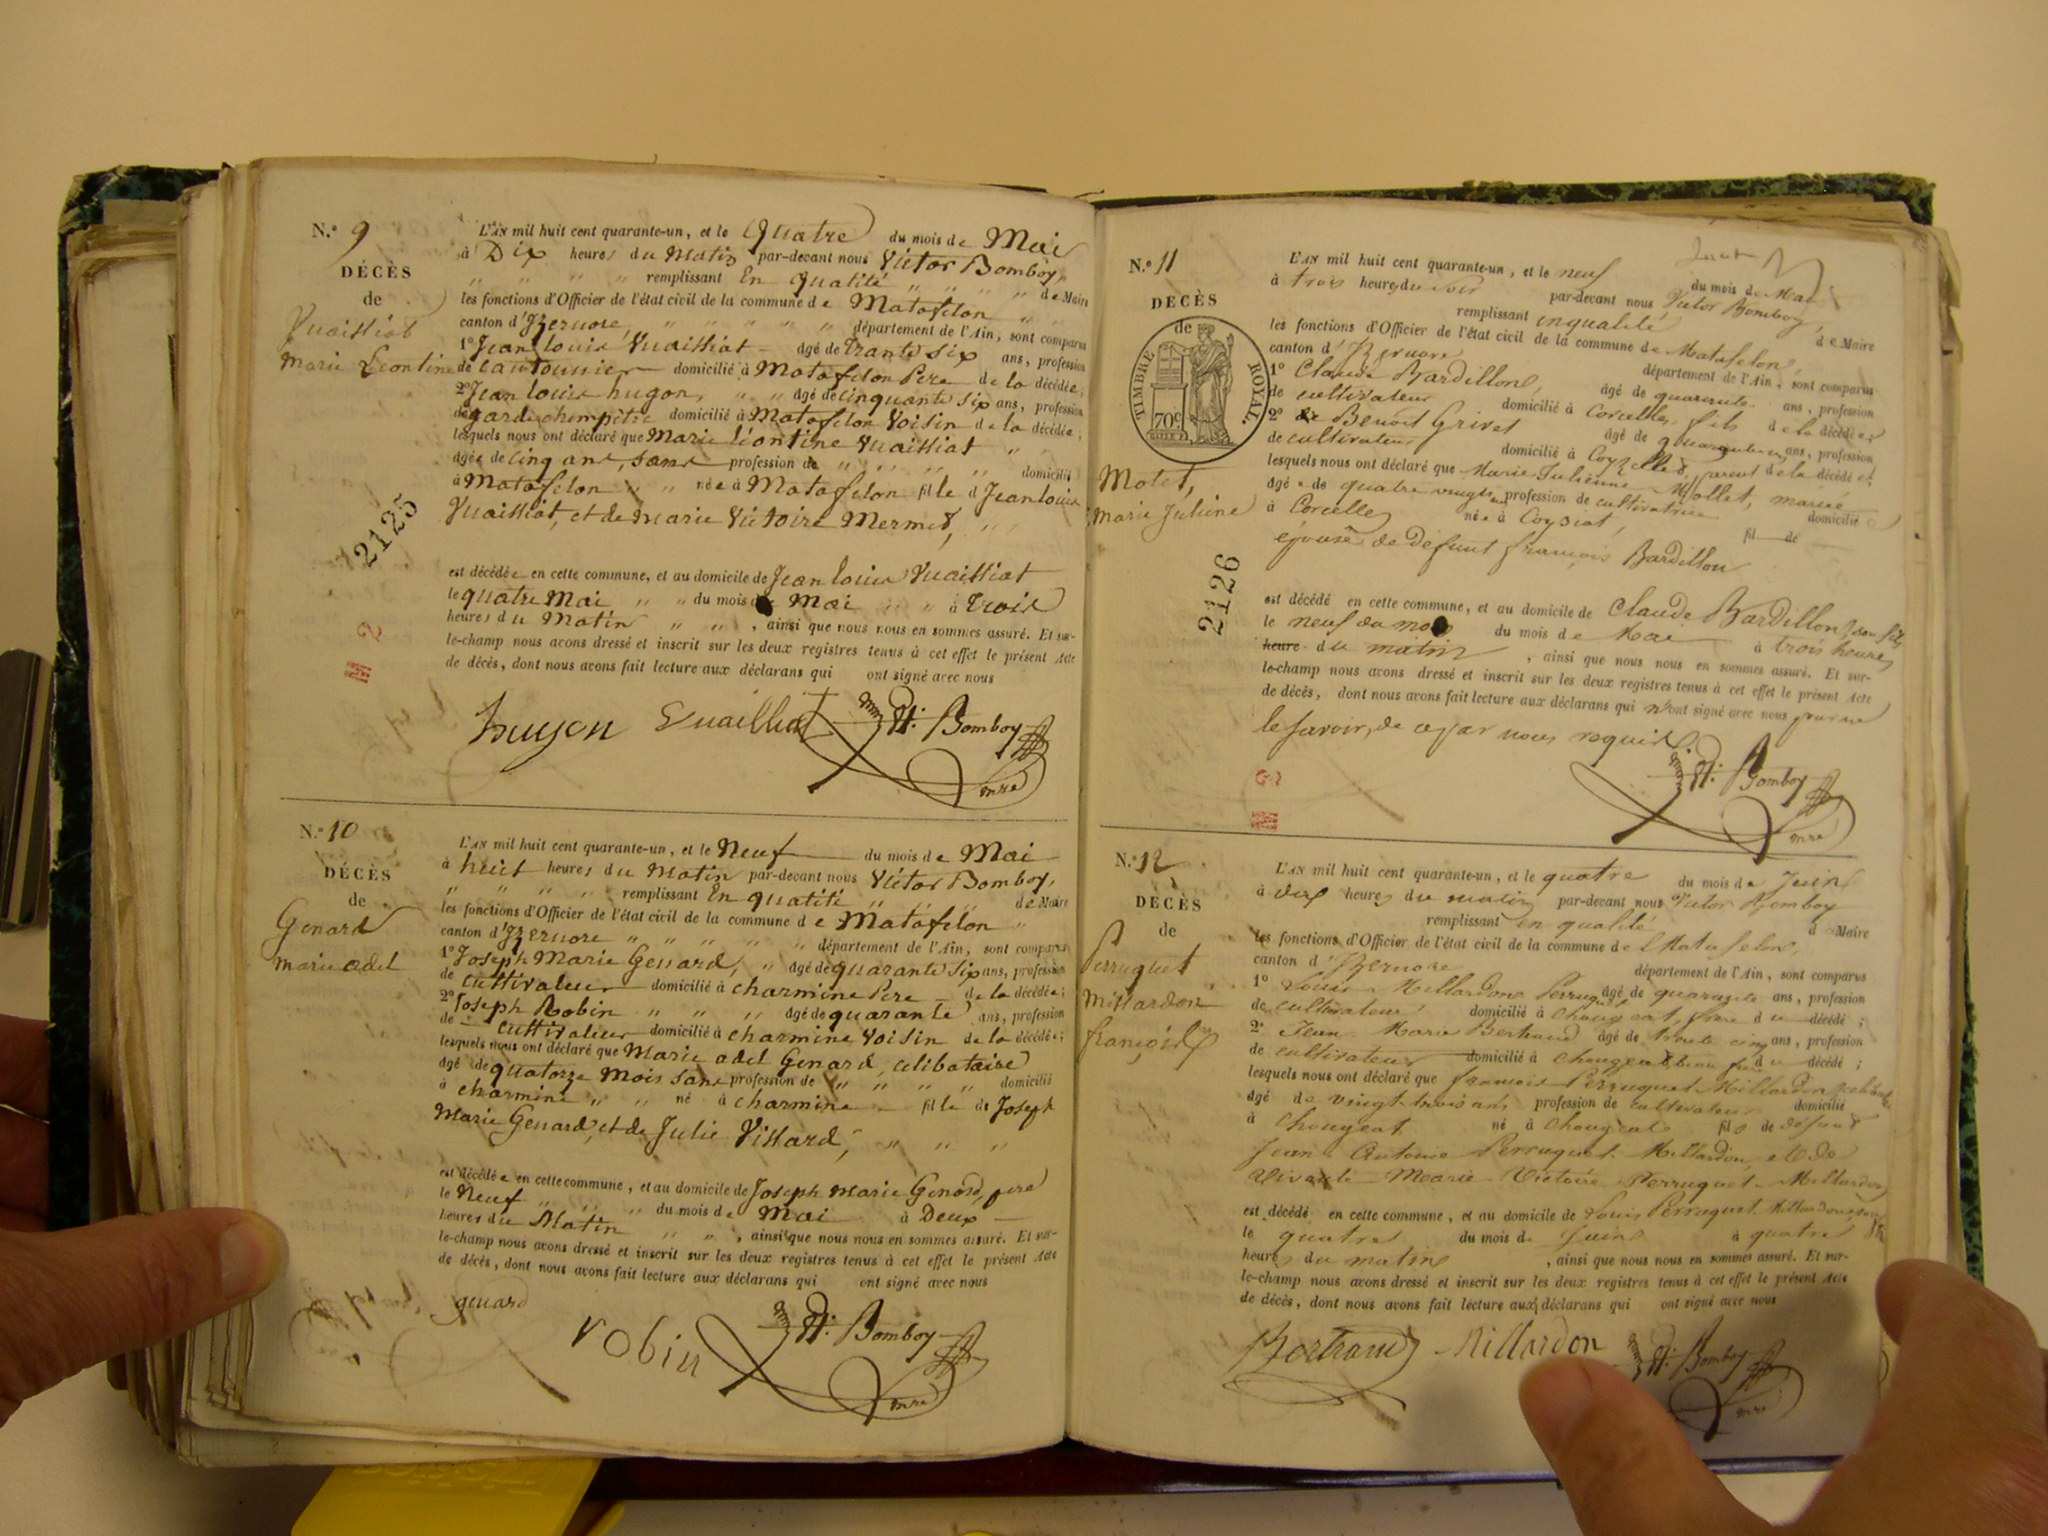 N.° 9
DÉCÈS
de
Vuailliat
Marie Léontine
2125
L'AN mil huit cent quarante-un, et le Quatre du mois de Mai
à Dix heures du Matin par-devant nous Victor Bomboy,
" " " " remplissant En Qualité " " " " de Maire
les fonctions d'Officier de l'état civil de la commune de Matafelon " "
canton d'Izernore, " " " " " département de l'Ain, sont comparus
1° Jean Louis Vuailliat âgé de trante six ans, profession
de cantonnier domicilié à Matafelon Père de la décédée;
2° Jean Louis hugon, " " âgé de cinquante six ans, profession
de garde champêtre domicilié à Matafelon Voisin de la décédée;
lesquels nous ont déclaré que Marie léontine Vuailliat " "
âgée de cinq ans, sans profession de " " " " " domicilié
à Matafelon " " née à Matafelon fille d Jean louis
Vuailliat, et de marie Victoire Mermet, " "
est décédée en cette commune, et au domicile de Jean louis Vuailliat
le quatre Mai " " du mois de Mai " " à trois
heures du Matin " " , ainsi que nous nous en sommes assuré. Et sur-
le-champ nous avons dressé et inscrit sur les deux registres tenus à cet effet le présent Acte
de décès, dont nous avons fait lecture aux déclarans qui ont signé avec nous
hugon Vuailliat Vr. Bomboy
mre
N.° 10
DÉCÈS
de
Genard
marie adel
L'AN mil huit cent quarante-un, et le Neuf du mois de Mai
à huit heures du Matin par-devant nous Victor Bomboy,
" " " " remplissant En qualité " " " de Maire
les fonctions d'Officier de l'état civil de la commune de Matafelon "
canton d'Izernore " " " " " département de l'Ain, sont comparus
1° Joseph Marie Genard, " âgé de quarante six ans, profession
de cultivateur domicilié à charmine Père de la décédée;
2° Joseph Robin " " " âgé de quarante ans, profession
de cultivateur domicilié à charmine Voisin de la décédée;
lesquels nous ont déclaré que Marie adel Genard, celibataire
âgé de quatorze mois sans profession de " " " " domicilié
à charmine " " né à charmine fille de Joseph
Marie Genard, et de Julie Villard, " " "
est décédée en cette commune, et au domicile de Joseph Marie Genard, père
le Neuf " " " du mois de Mai à Deux
heures du Matin " " , ainsi que nous nous en sommes assuré. Et sur-
le-champ nous avons dressé et inscrit sur les deux registres tenus à cet effet le présent Acte
de décès, dont nous avons fait lecture aux déclarans qui ont signé avec nous
genard
robin Vr. Bomboy
mre
N.° 11
DÉCÈS
de
TIMBRE ROYAL
70c
Molet,
Marie Juliène
2126
L'AN mil huit cent quarante-un, et le neuf du mois de Mai
à trois heures du soir par-devant nous Victor Bomboy,
remplissant en qualité de Maire
les fonctions d'Officier de l'état civil de la commune de Matafelon,
canton d'Izernore département de l'Ain, sont comparus
1° Claude Bardillon, âgé de quarante ans, profession
de cultivateur domicilié à Corcelles, fils de la décédée;
2° Benoit Grivet âgé de quarante ans, profession
de cultivateur domicilié à Coyselles, parent de la décédée;
lesquels nous ont déclaré que Marie Julienne Mollet, mariée
âgée de quatre vingts profession de cultivatrice domicilié
à Corcelles née à Coysiat, fil de
épouse de Defunt françois Bardillon
est décédé en cette commune, et au domicile de Claude Bardillon, son fils
le neuf du mois du mois de Mai à trois heures
heure du matin , ainsi que nous nous en sommes assuré. Et sur-
le-champ nous avons dressé et inscrit sur les deux registres tenus à cet effet le présent Acte
de décès, dont nous avons fait lecture aux déclarans qui n'ont signé avec nous pour ne
le savoir, de ce par nous requis
Vr. Bomboy
mre
N.° 12
DÉCÈS
de
Perruquet
Millardon
françois
L'AN mil huit cent quarante-un, et le quatre du mois de Juin
à dix heures du matin par-devant nous Victor Bomboy
remplissant en qualité de Maire
les fonctions d'Officier de l'état civil de la commune de Matafelon,
canton d'Izernore département de l'Ain, sont comparus
1° Louis Millardon Perruquet âgé de quarante ans, profession
de cultivateur domicilié à Chougeat, frère du décédé;
2° Jean Marie Bertrand âgé de trente cinq ans, profession
de cultivateur domicilié à Chougeat beau frère du décédé;
lesquels nous ont déclaré que francois Perruquet Millardon, celibataire
âgé de vingt trois ans profession de cultivateur domicilié
à Chougeat né à Chougeat fils de défunt
Jean Antoine Perruquet Millardon, et de
vivante Marie Victoire Perruquet Millardon
est décédé en cette commune, et au domicile de Louis Perruquet Millardon, son
le quatre du mois de Juin à quatre
heures du matin , ainsi que nous nous en sommes assuré. Et sur-
le-champ nous avons dressé et inscrit sur les deux registres tenus à cet effet le présent Acte
de décès, dont nous avons fait lecture aux déclarans qui ont signé avec nous
Bertrand Millardon Vr. Bomboy
mre